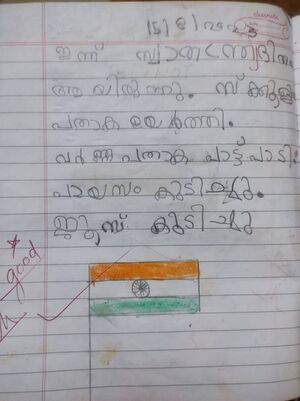 15/8/2022
ഇന്ന് സ്വാതന്ത്ര്യദിനം
ആയിരുന്നു. സ്ക്കൂളിൽ
പതാക ഉയർത്തി.
വർണ്ണപതാക പാട്ട് പാടി.
പായസം കുടിച്ചു.
ജ്യൂസ് കുടിച്ചു
good